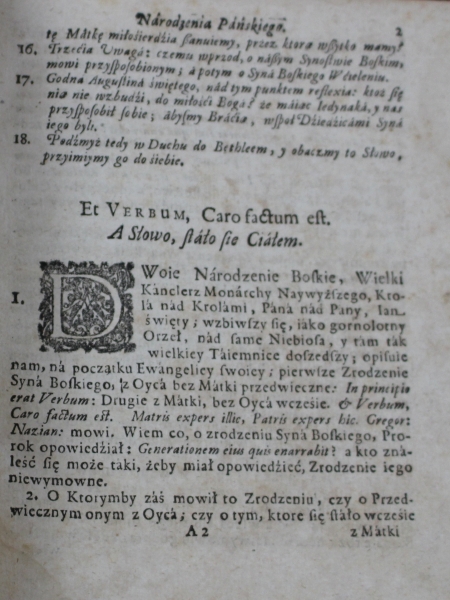 Národzenia Páńskiego. 2
tę Mátkę miłośierdzia słanuiemy, przez ktorą wszytko mamy?
16. Trzećia Uwagá: czemu wprzod, o nászym Synostwie Boskim,
mowi przysposobionym; á potym o Syná Boskiego Wćieleniu.
17. Godna Augustiná świętego, nád tym punktem reflexia: ktoż się
nia nie wzbudźi, do miłośći Bogá? że máiąc Iedynaká, y nas
przysposobił sobie; ábyśmy Bráćia, wspoł Dźiedźicámi Syná
iego byli.
18. Podźmyż tedy w Duchu do Bethleem, y obaczmy to Słowo,
przyimiymy go do siebie.
Et VERBUM, Caro factum est.
A Słowo, stáło się Ciáłem.
I. DWoie Národzenie Boskie, Wielki
Kánclerz Monárchy Naywyższego, Kro-
lá nád Krolámi, Páná nád Pány, Ian
święty; wzbiwszy się, iáko gornolotny
Orzeł, nád sáme Niebiosá, y tám ták
wielkiey Táiemnice doszedszy; opisuie
nam, ná początku Ewángelicy swoiey; pierwsze Zrodzenie
Syná Boskiego, z Oycá bez Mátki przedwieczne: In principio
erat Verbum: Drugie z Mátki, bez Oycá wcześie. & Verbum,
Caro factum est. Matris expers illic, Patris expers hic. Gregor:
Nazian: mowi. Wiem co, o zrodzeniu Syná Boskiego, Pro-
rok opowiedźiał: Generationem eius quis enarrabit? a kto zná-
leść się może táki, żeby miał opowiedźieć, Zrodzenie iego
niewymowne.
2. O Ktorymby záś mowił to Zrodzeniu, czy o Przed-
wiecznym onym z Oycá; czy o tym, ktore się stáło wcześie
A 2 z Mátki